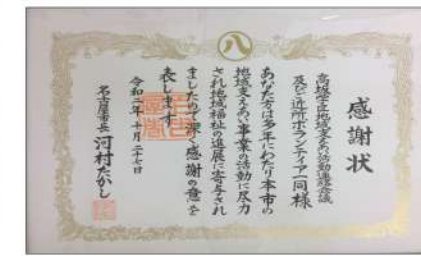 八
感謝状
高坂学区地域支えあい活動連絡会議
及びご近所ボランティア一同様
あなた方は多年にわたり本市の
地域支えあい事業の活動に尽力
され地域福祉の進展に寄与され
ましたので深く感謝の意を
表します
令和二年十月二十七日
名古屋市長 河村たかし